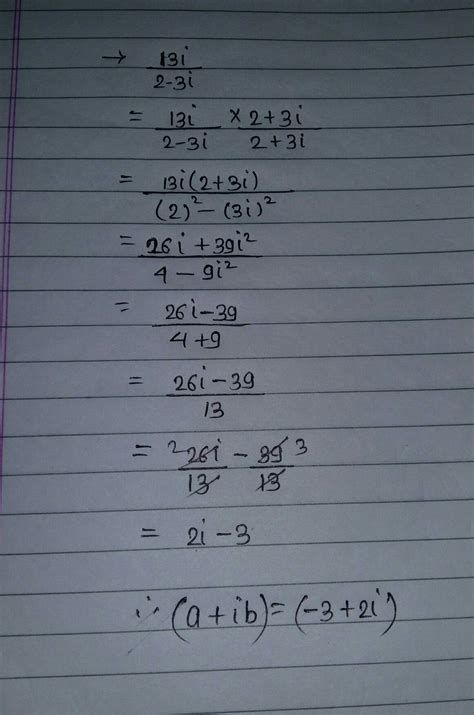 → 13i / 2-3i
= 13i / 2-3i × 2+3i / 2+3i
= 13i(2+3i) / (2)² - (3i)²
= 26i + 39i² / 4 - 9i²
= 26i-39 / 4+9
= 26i - 39 / 13
= ² 26i / 13 - 39 ³ / 13
= 2i - 3
∴ (a+ib) = (-3+2i)